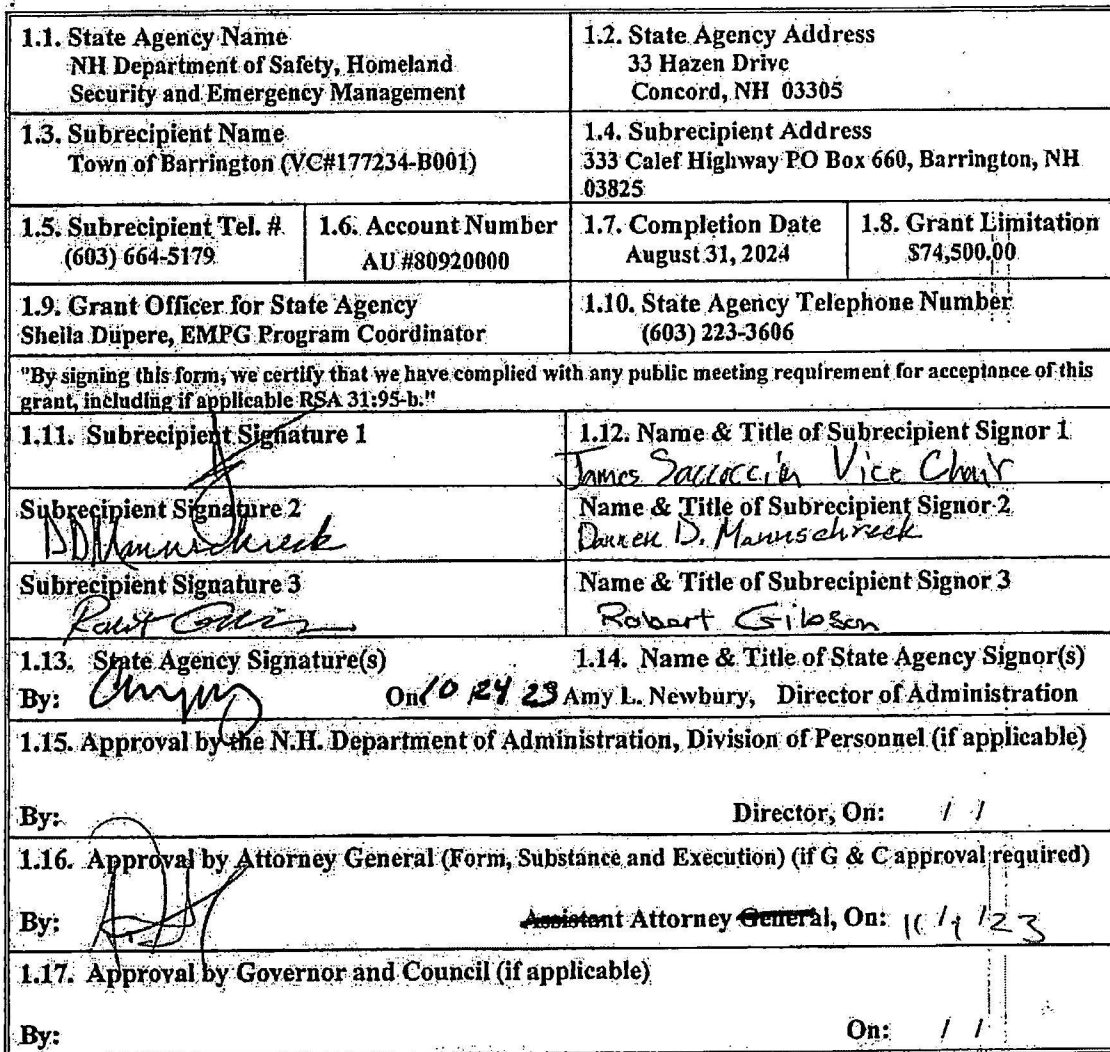 1.1. State Agency Name
NH Department of Safety, Homeland
Security and Emergency Management
1.2. State Agency Address
33 Hazen Drive
Concord, NH 03305
1.3. Subrecipient Name
Town of Barrington (VC#177234-B001)
1.4. Subrecipient Address
333 Calef Highway PO Box 660, Barrington, NH
03825
1.5. Subrecipient Tel. #
(603) 664-5179
1.6. Account Number
AU #80920000
1.7. Completion Date
August 31, 2024
1.8. Grant Limitation
$74,500.00
1.9. Grant Officer for State Agency
Sheila Dupere, EMPG Program Coordinator
1.10. State Agency Telephone Number
(603) 223-3606
"By signing this form, we certify that we have complied with any public meeting requirement for acceptance of this
grant, including if applicable RSA 31:95-b."
1.11. Subrecipient Signature 1
1.12. Name & Title of Subrecipient Signor 1
James Saccoccia Vice Chair
Subrecipient Signature 2
DDMannschreck
Name & Title of Subrecipient Signor 2
Darren D. Mannschreck
Subrecipient Signature 3
Name & Title of Subrecipient Signor 3
Robert Gibson
1.13. State Agency Signature(s)
1.14. Name & Title of State Agency Signor(s)
By: On 10 24 23 Amy L. Newbury, Director of Administration
1.15. Approval by the N.H. Department of Administration, Division of Personnel (if applicable)
By: Director, On: / /
1.16. Approval by Attorney General (Form, Substance and Execution) (if G & C approval required)
By: Assistant Attorney General, On: / /23
1.17. Approval by Governor and Council (if applicable)
By: On: / /